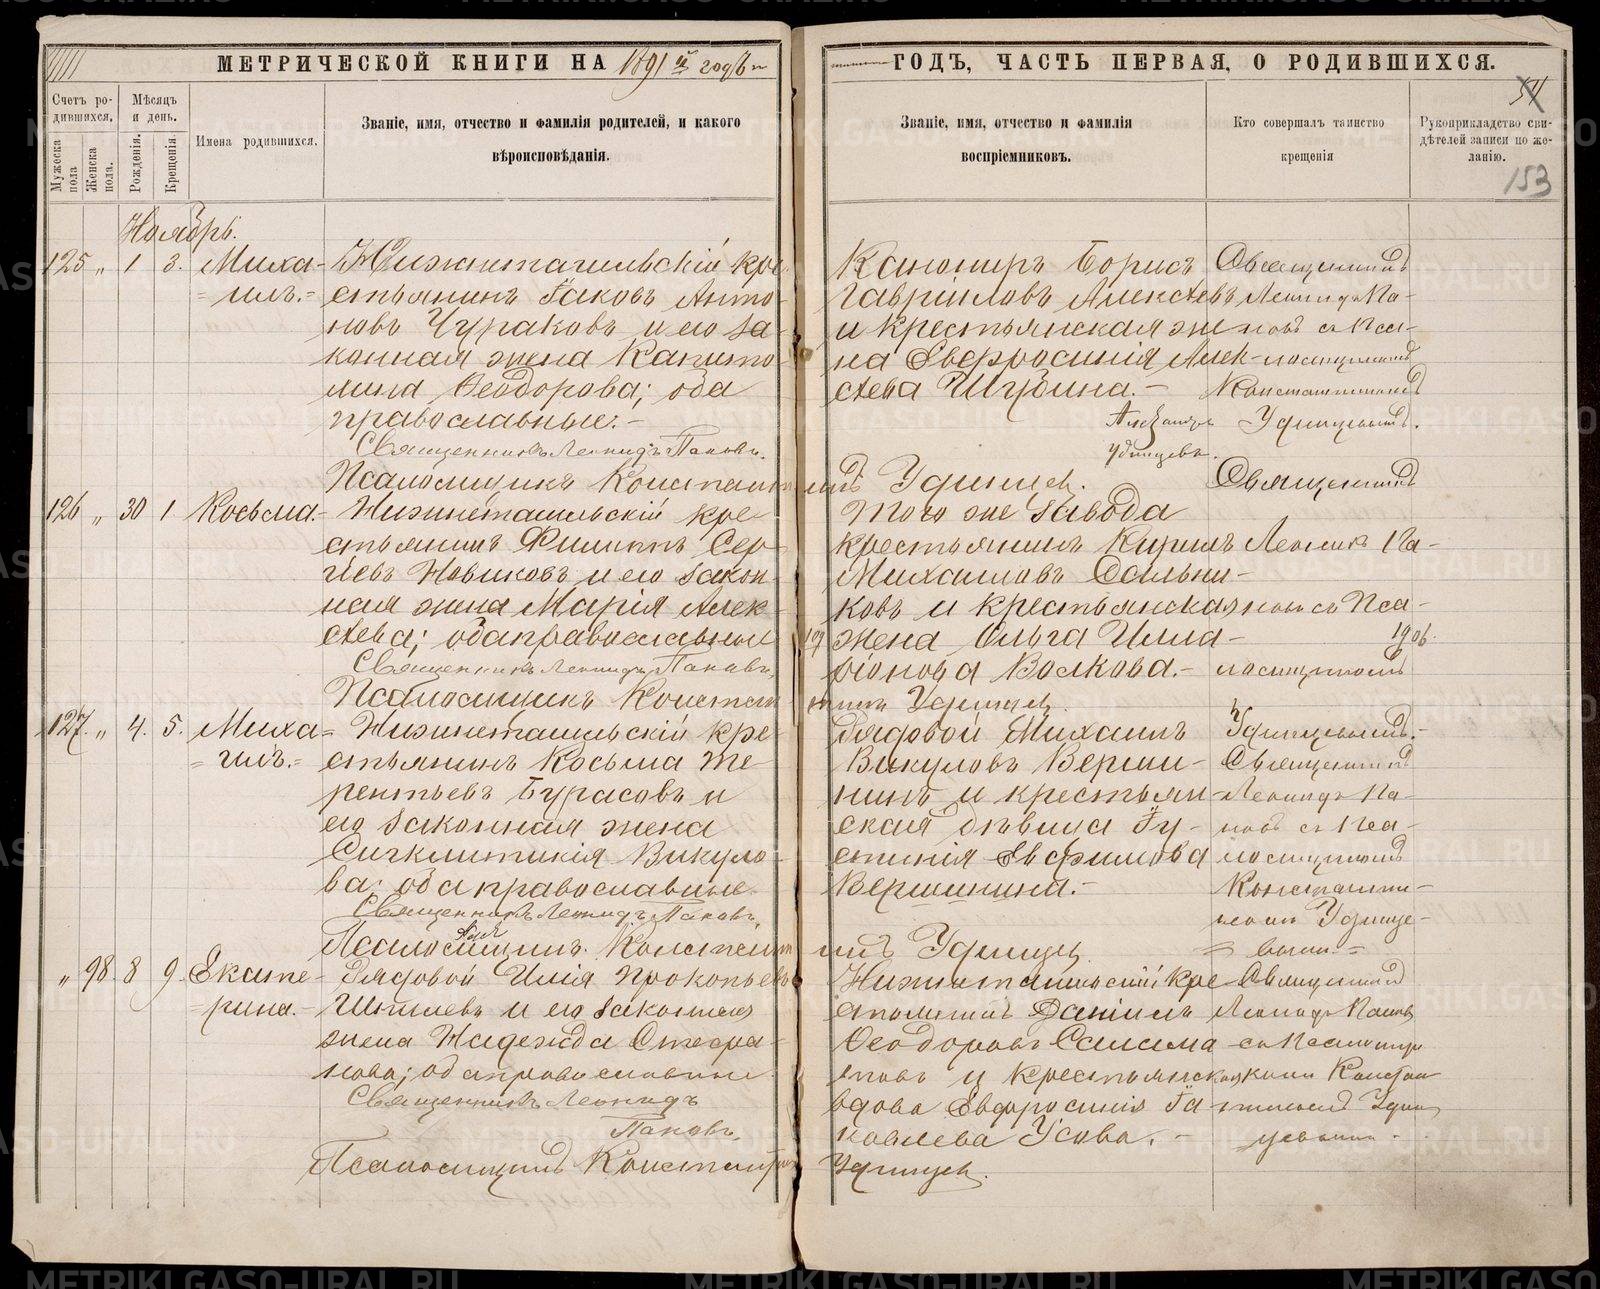 МЕТРИЧЕСКОЙ КНИГИ НА 1891 й годъ
ГОДЪ, ЧАСТЬ ПЕРВАЯ, О РОДИВШИХСЯ.
Счетъ ро-
дившихся.
Мужеска
пола
Женска
пола.
Мѣсяцъ
и день.
Рожденія.
Крещенія.
Имена родившихся.
Званіе, имя, отчество и фамилія родителей, и какого
вѣроисповѣданія.
Званіе, имя, отчество и фамилія
воспріемниковъ.
Кто совершалъ таинство
крещенія
Рукоприкладство сви-
дѣтелей записи по же-
ланію.
153
Ноябрь.
125 " 1 3. Миха-
илъ.
Нижнетагильскій кре-
стьянинъ Іаковъ Анто-
новъ Чураковъ и его за-
конная жена Капито-
лина Ѳеодорова; оба
православные.-
Священникъ Леонидъ Пановъ.
Псаломщикъ Константинъ Удинцев.
Канониръ Борисъ
Гавріиловъ Алексѣевъ
и крестьянская же-
на Евфросинія Алек-
сѣева Шубина.-
Священникъ
Леонидъ Па-
новъ съ Пса-
ломщикомъ
Константиномъ
Удинцевымъ.
Александръ
Удинцевъ.
126 " 30 1 Косьма.-
Нижнетагильскій кре-
стьянинъ Филиппъ Сер-
гіевъ Новиковъ и его закон-
ная жена Марія Алек-
сѣева; оба православные
Священникъ Леонидъ Пановъ.
Псаломщикъ Константинъ Удинцев.
Того же завода
крестьянинъ Кириллъ
Михаиловъ Сальни-
ковъ и крестьянская
жена Ольга Илла-
ріонова Волкова.-
Священникъ
Леонидъ Па-
новъ съ Пса-
ломщикомъ
Удинцевымъ.-
127. " 4. 5. Миха-
илъ.-
Нижнетагильскій кре-
стьянинъ Косьма Те-
рентьевъ Бурасовъ и
его законная жена
Сигклитикія Викуло-
ва; оба православные.
Священникъ Леонидъ Пановъ.
Псаломщикъ Константинъ Удинцев.
Рядовой Михаилъ
Викуловъ Верши-
нинъ и крестьян-
ская дѣвица Іу-
стинія Евфимова
Вершинина.-
Священникъ
Леонидъ Па-
новъ съ Пса-
ломщикомъ
Константи-
номъ Удинце-
вымъ.-
" 98. 8 9. Екате-
рина.-
Рядовой Илія Прокопьевъ
и его законная
жена Надежда Стефа-
нова; оба православные
Священникъ Леонидъ
Пановъ.
Псаломщикъ Константинъ
Удинцев.
Нижнетагильскій кре-
стьянинъ Даніилъ
Ѳеодоровъ Салама-
товъ и крестьянская
вдова Евфросинія Іа-
ковлева Усова.-
Священникъ
Леонидъ Пановъ
съ Псаломщи-
комъ Констан-
тиномъ Удин-
цевымъ.